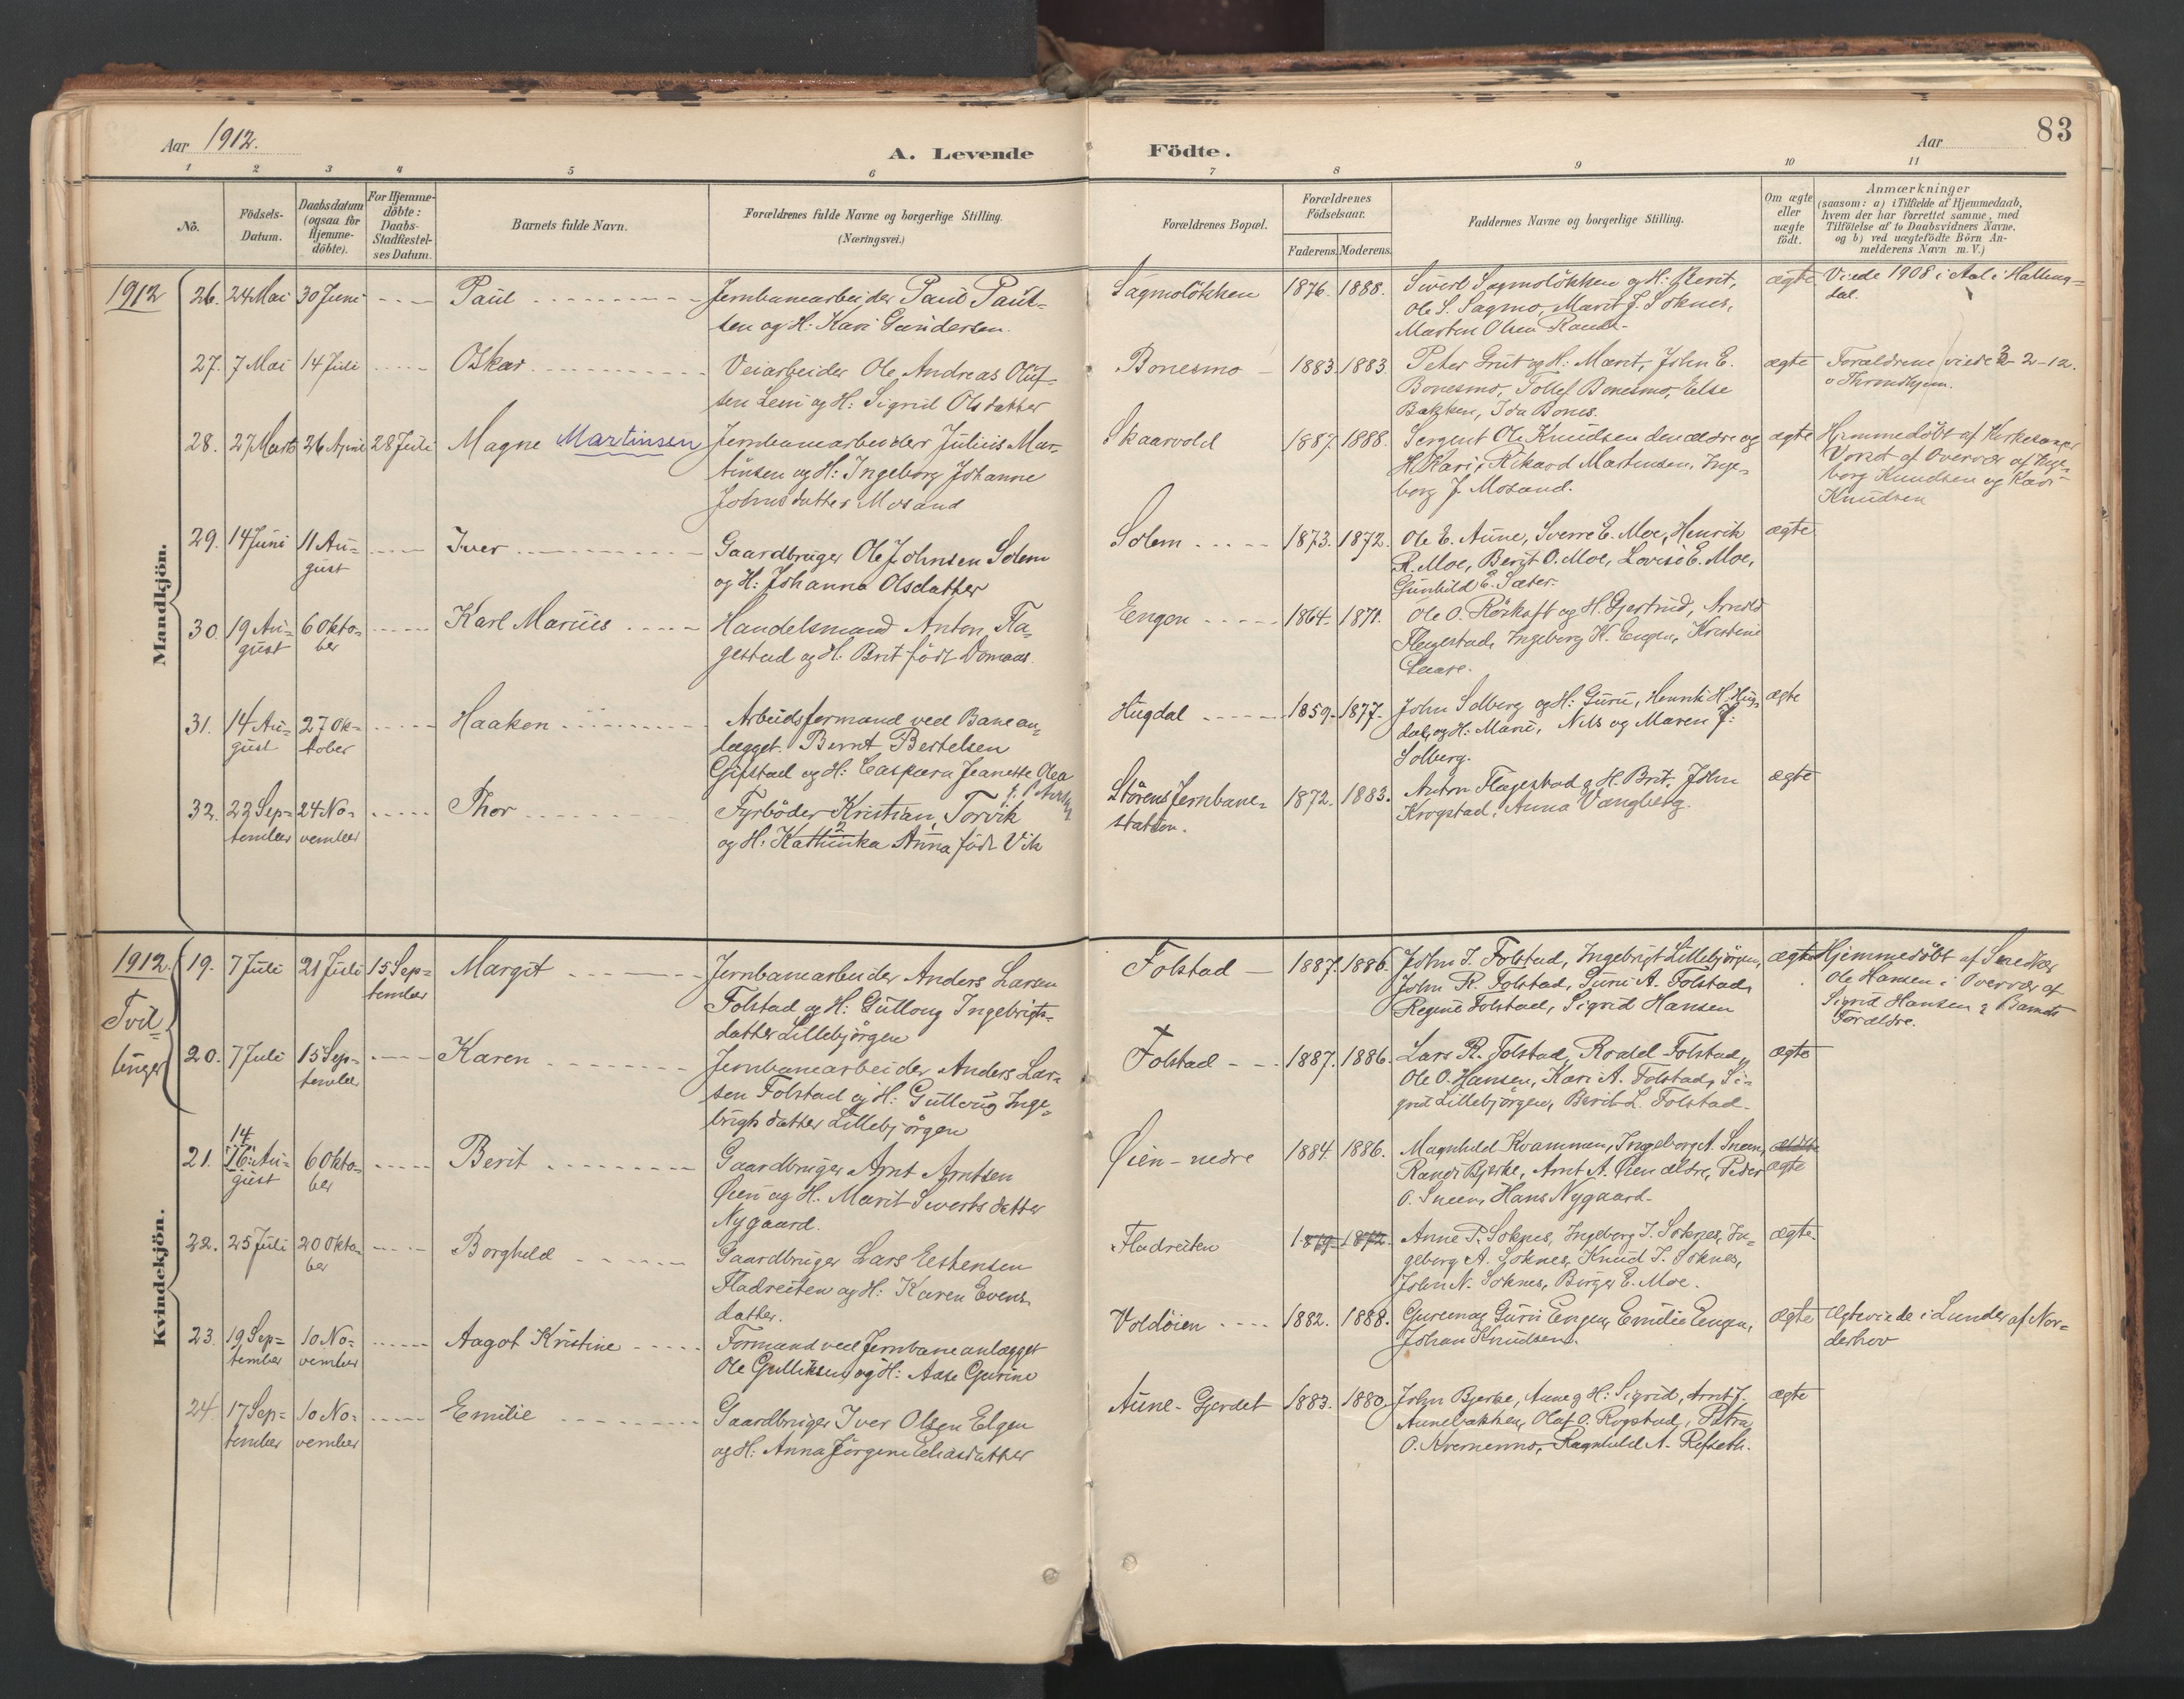 Aar 1912.
A. Levende Födte.
Aar
83
1 2 3 4 5 6 7 8 9 10 11
No.
Födsels-Datum.
Daabsdatum (ogsaa for Hjemme-döbte).
For Hjemme-döbte: Daabs-Stadfæstel-ses Datum.
Barnets fulde Navn.
Forældrenes fulde Navne og borgerlige Stilling.
(Næringsvei.)
Forældrenes Bopæl.
Forældrenes Födselsaar.
Faderens. Moderens.
Faddernes Navne og borgerlige Stilling.
Om ægte eller uægte födt.
Anmærkninger
(saasom: a) i Tilfælde af Hjemmedaab,
hvem der har forrettet samme, med
Tilföielse af to Daabsvidners Navne.
og b) ved uægtefödte Börn An-
melderens Navn m. V.)
Mandkjön.
1912
26. 24 Mai 30 Juni Paul
Jernbanearbeider Paul Paul-
sen og H: Kari Gundersen.
Sagmolökken 1876. 1888.
Sivert Sagmolökken og H: Berit,
Ole S. Sagmo, Marit J. Soknes,
Marten Olsen
ægte
Viede 1908 i Aal i Halling-
dal.
27. 7 Mai 14 Juli Oskar
Veiarbeider Ole Andreas Oluf-
sen Lein og H: Sigrid Olsdatter
Bonesmo 1883. 1883.
Peter Grut og H: Marit, John E.
Bonesmo, Tollef Bonesmo, Else
Bakken, Ida Bones.
ægte
Forældrene viede 3-2-12.
i Throndhjem.
28. 27 Marts 26 April 28 Juli Magne Martinsen
Jernbanearbeider Julius Mar-
tinsen og H: Ingeborg Johanne
Johnsdatter Mosand
Skaarvold 1887. 1888.
Sergent Ole Knudsen den ældre og
H. Kari, Rikard Martinsen, Inge-
borg J. Mosand.
ægte
Hjemmedöbt af Kirkesanger
Vorset af Overvær af Inge-
borg Knudsen og Kari
Knudsen
29. 14 Juni 11 Au-
gust Iver
Gaardbruger Ole Johnsen Solem
og H: Johanna Olsdatter
Solem 1873. 1872.
Ole E. Aune, Sverre E. Moe, Henrik
R. Moe, Berit O. Moe, Lovise E. Moe,
Gunhild E. Sæter.
ægte
30. 19 Au-
gust 6 Okto-
ber Karl Marius
Handelsmand Anton Fla-
gestad og H. Brit födt Domaas.
Engen 1864. 1871.
Ole O. Röskaft og H. Gjertrud, Arnold
Flagestad, Ingeborg K. Engen, Kristine
31. 14 Au-
gust 27 Ok-
tober Haakon
Arbeidsformand ved Banean-
lægget. Bernt Bertelsen
Gifstad og H: Caspara Jeanette Olea
Hugdal 1859. 1877.
John Solberg og H: Guru, Henrik H. Hug-
dal, og H: Marie, Nils og Maren J.
Solberg.
ægte
32. 23 Sep-
tember 24 No-
vember Thor
Fyrböder Kristian Torvik
og H: Kathinka Anna födt Vik
Störens Jernbane-
station. 1872. 1883.
Anton Flagestad & H. Brit, John
Krogstad, Anna Vangberg.
ægte
Kvindekjön.
1912.
Tvil-
linger
19. 7 Juli 21 Juli 15 Sep-
tember Margit
Jernbanearbeider Anders Larsen
Folstad og H: Gullaug Ingebrigts-
datter Lillebjørgen
Folstad 1887. 1886.
John I. Folstad, Ingebrigt Lillebjørgen,
John R. Folstad, Guru A. Folstad,
Regine Folstad, Sigrid Hansen
ægte
Hjemmedöbt af Snedker
Ole Hansen i Overvær af
Sigrid Hansen & Barnets
Forældre.
20. 7 Juli 15 Sep-
tember Karen
Jernbanearbeider Anders Lar-
sen Folstad og H: Gullaug Inge-
brigtsdatter Lillebjørgen
Folstad 1887. 1886.
Lars R. Folstad, Roald Folstad,
Ole O. Hansen, Kari A. Folstad, Si-
grid Lillebjørgen, Berit L. Folstad.
ægte
21. 14 16 Au-
gust 6 Okto-
ber Berit
Gaardbruger Arnt Arntsen
Øien og H. Marit Sivertsdatter
Nygaard.
Øien-nedre 1884. 1886.
Magnhild Kvammen, Ingeborg A. Sneen,
Randi Bjerke, Arnt A. Øien ældre, Peder
O. Sneen, Hans Nygaard.
ægte
22. 25 Juli 20 Okto-
ber Borghild
Gaardbruger Lars Estensen
Fladreiten og H: Karen Evens-
datter.
Fladreiten 1879. 1872.
Anne P. Soknes, Ingeborg I. Soknes, In-
geborg A. Soknes, Knud I. Soknes,
John N. Soknes, Birger E. Moe.
ægte.
23. 19 Sep-
tember 10 No-
vember Aagot Kristine
Formand ved Jernbaneanlægget
Ole Gulliksen og H: Aase Gurine
Voldöien 1882. 1888.
Guren og Guru Engen, Emilie Engen,
Johan Knudsen.
ægte
Ægteviede i Lunder af Nor-
derhov
24 17 Sep-
tember 10 No-
vember Emilie
Gaardbruger Iver Olsen Elgen
og H: Anna Jörgine Eliasdatter
Aune-Gjerdet 1883. 1880.
John Bjerke, Aune & H: Sigrid, Arnt J.
Aunebakken, Olaf O. Rogstad, Petra
O. Kvernmo, Ragnhild A. Refseth.
ægte